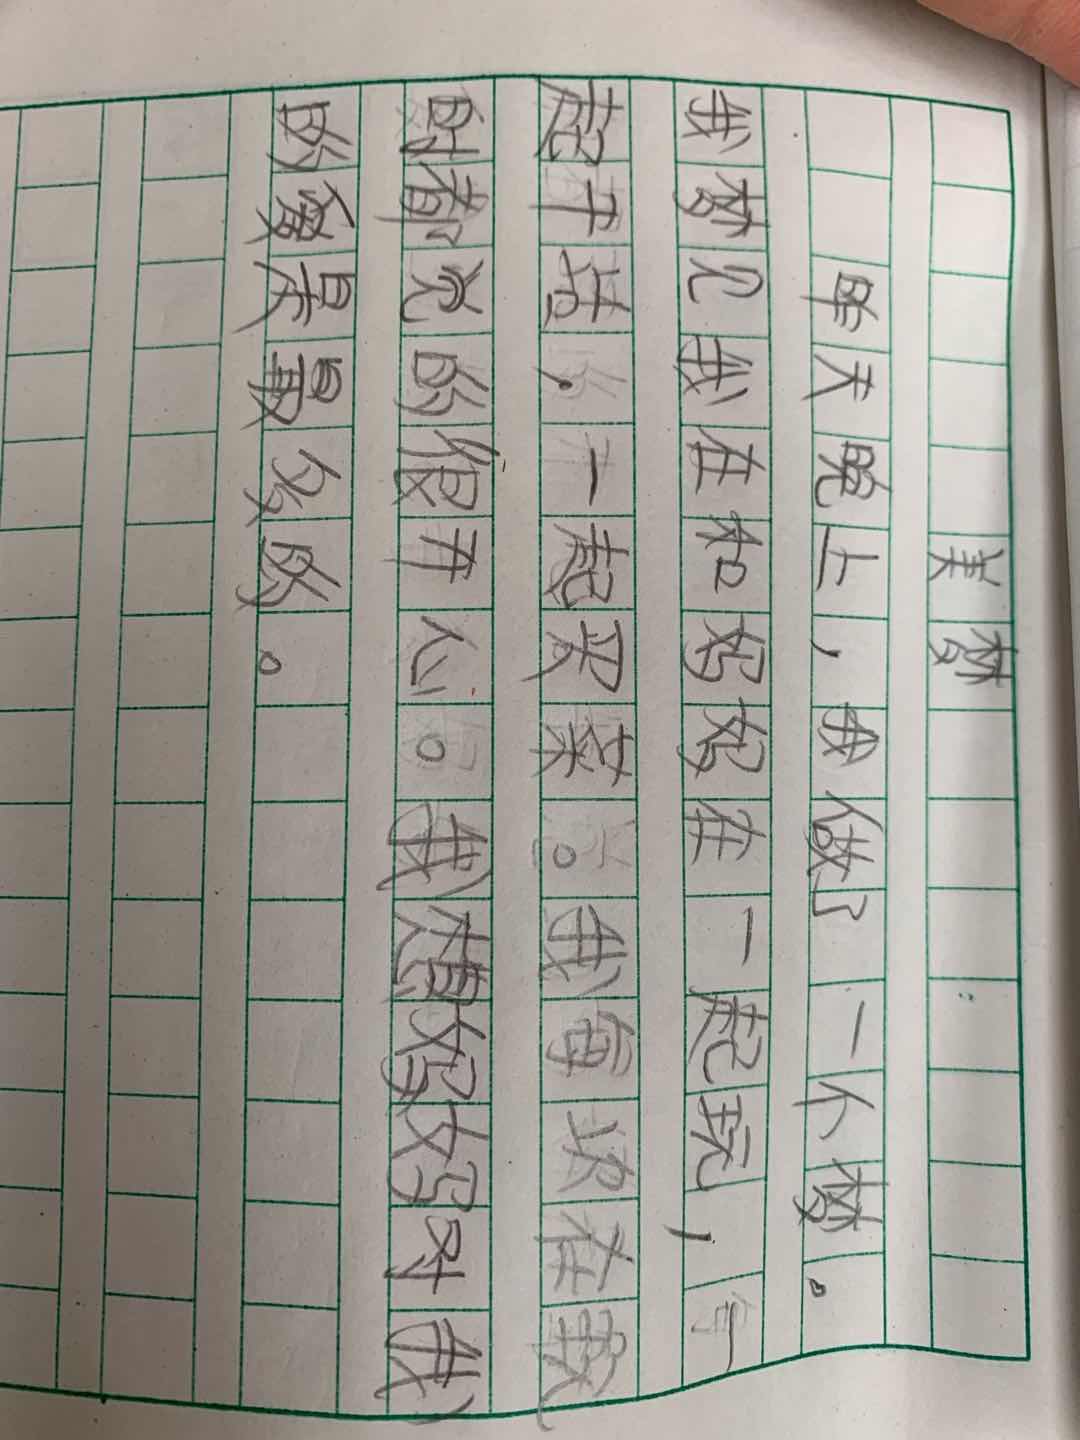 美梦
昨天晚上，我做了一个梦。
我梦见我在和妈妈在一起玩，一
起干活，一起买菜。我每次在
时都觉的很开心。我想妈妈对我
的爱是最多的。